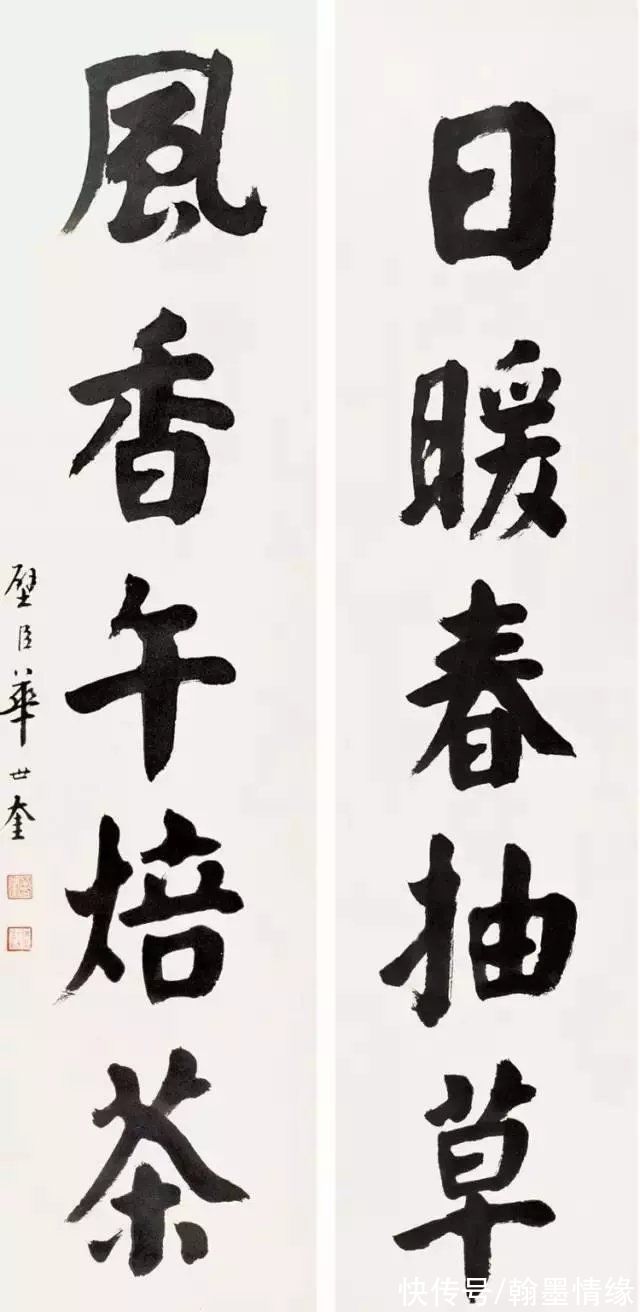 日暖春抽草
風香午焙茶
壁臣華世奎
快传号/翰墨情缘